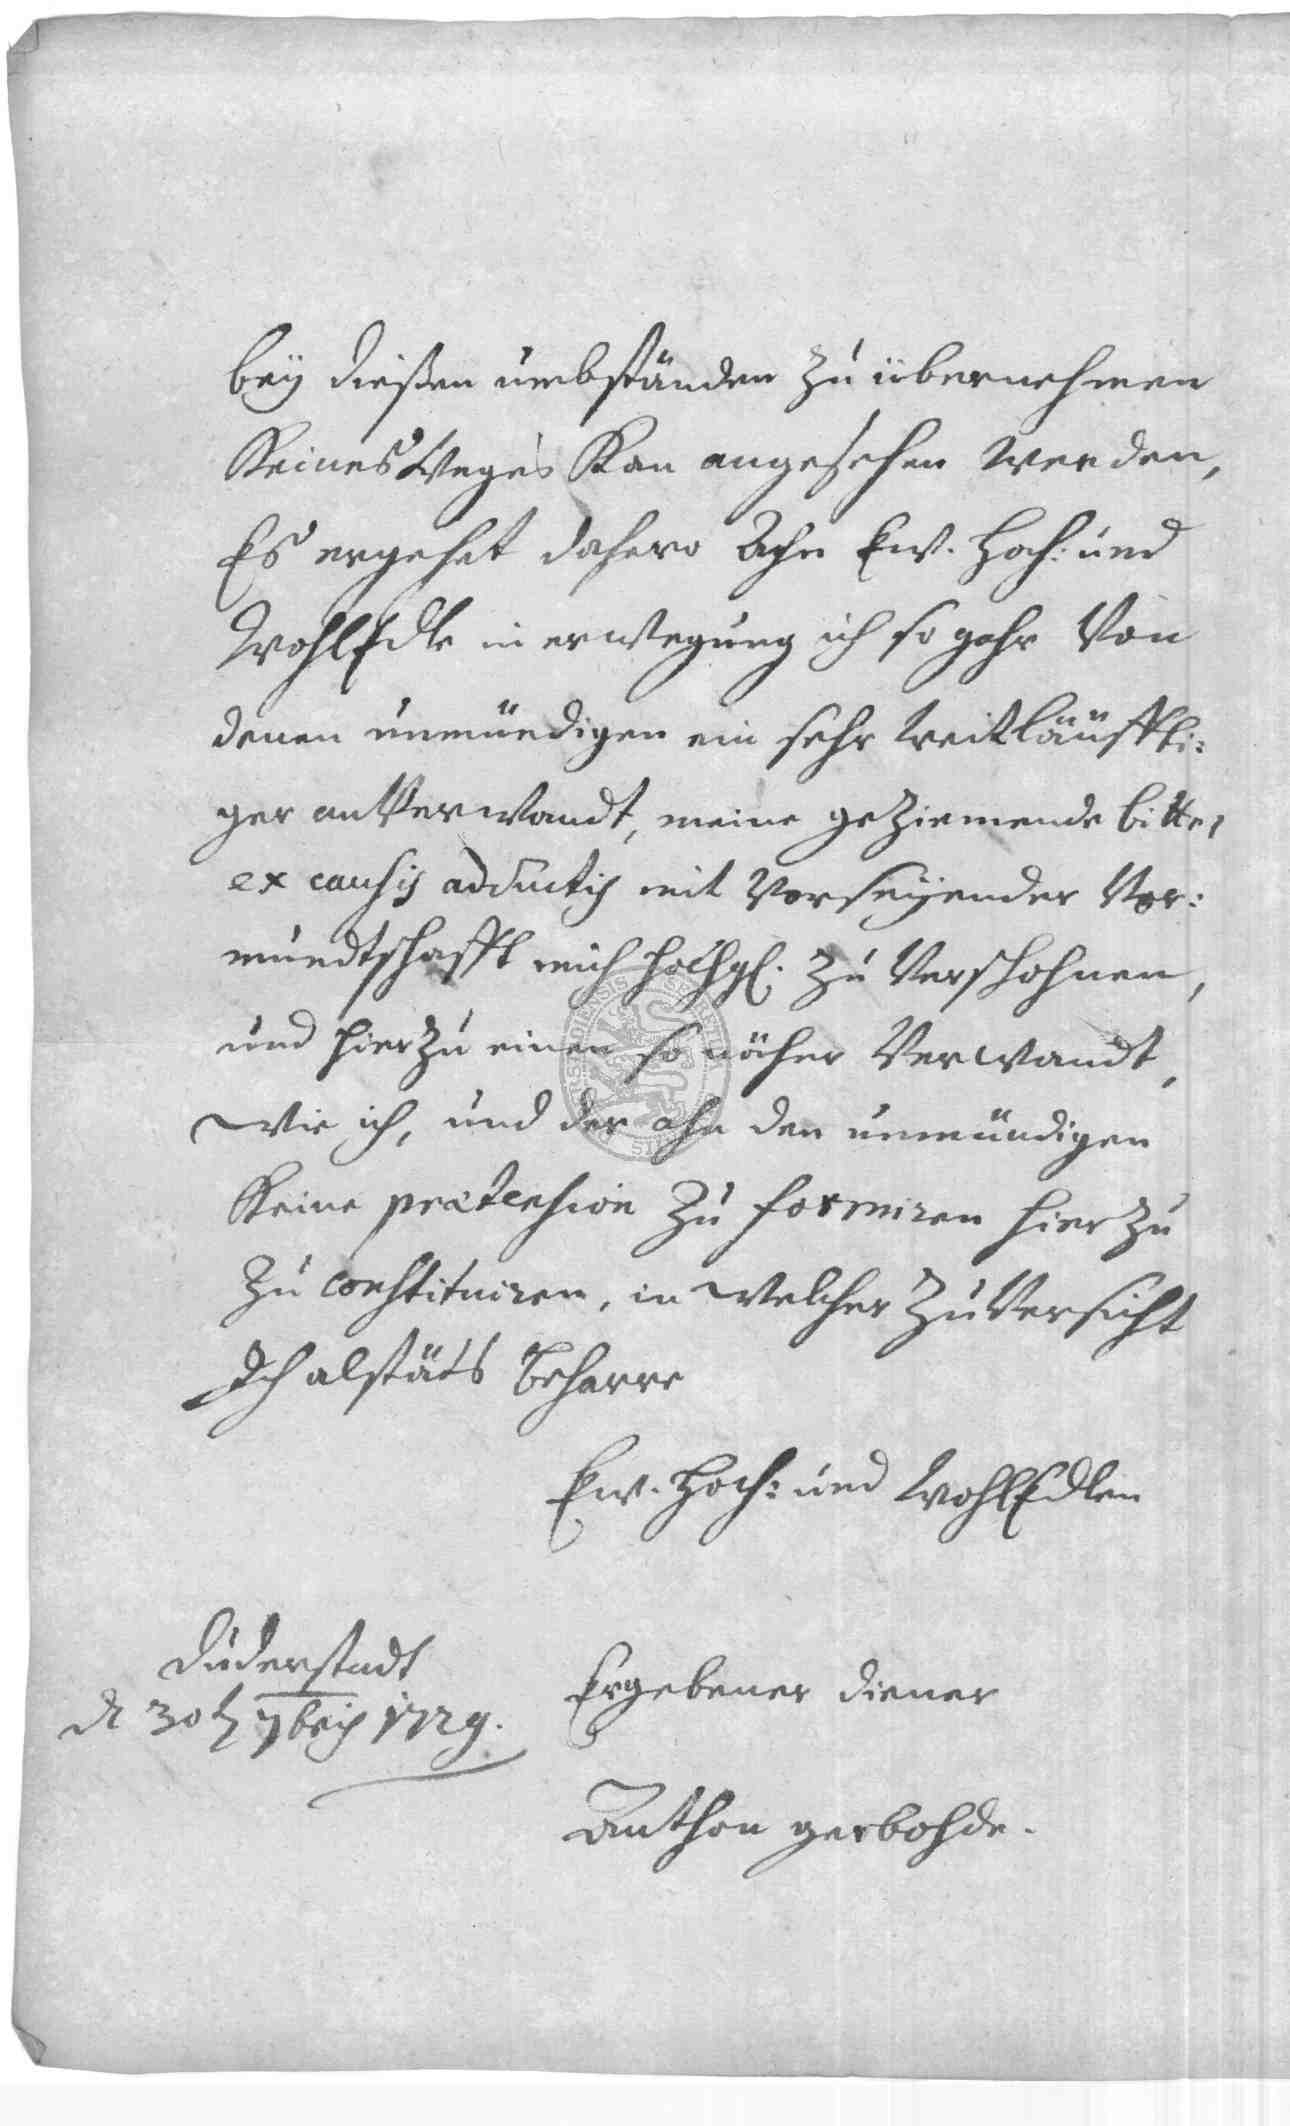 beÿ dießen umbständen zu übernehmen
Keines Weges Kan angesehen werden,
Es ergehet dahero Ahn Ew. Hoch: und
WohlEdle in erwegung ich so gahr Von
denen unmündigen ein sehr weitläüfftti:
ger anVerwandt, meine geziemende bitte,
ex causis adductis mit Vorseÿender Vor:
mundtschafft mich hochgl. zu Verschohnen,
und hierzu einen so näher Verwandt,
wie ich, und der ahn den unmündigen
Keine prætension zu formiren hierzu
zu constituiren, in welcher ZuVersicht
Ich alstäts beharre
Ew. Hoch: und WohlEdlen
Duderstadt
d 30t 7bris 1729.
Ergebener diener
Anthon gerbohde.